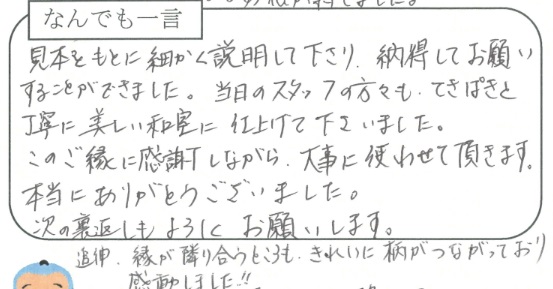 なんでも一言
見本をもとに細かく説明して下さり、納得してお願い
することができました。当日のスタッフの方々も、てきぱきと
丁寧に美しい和室に仕上げて下さいました。
このご縁に感謝しながら、大事に使わせて頂きます。
本当にありがとうございました。
次の裏返しもよろしくお願いします。
追伸、縁が隣り合うところも、きれいに柄がつながっており
感動しました!!